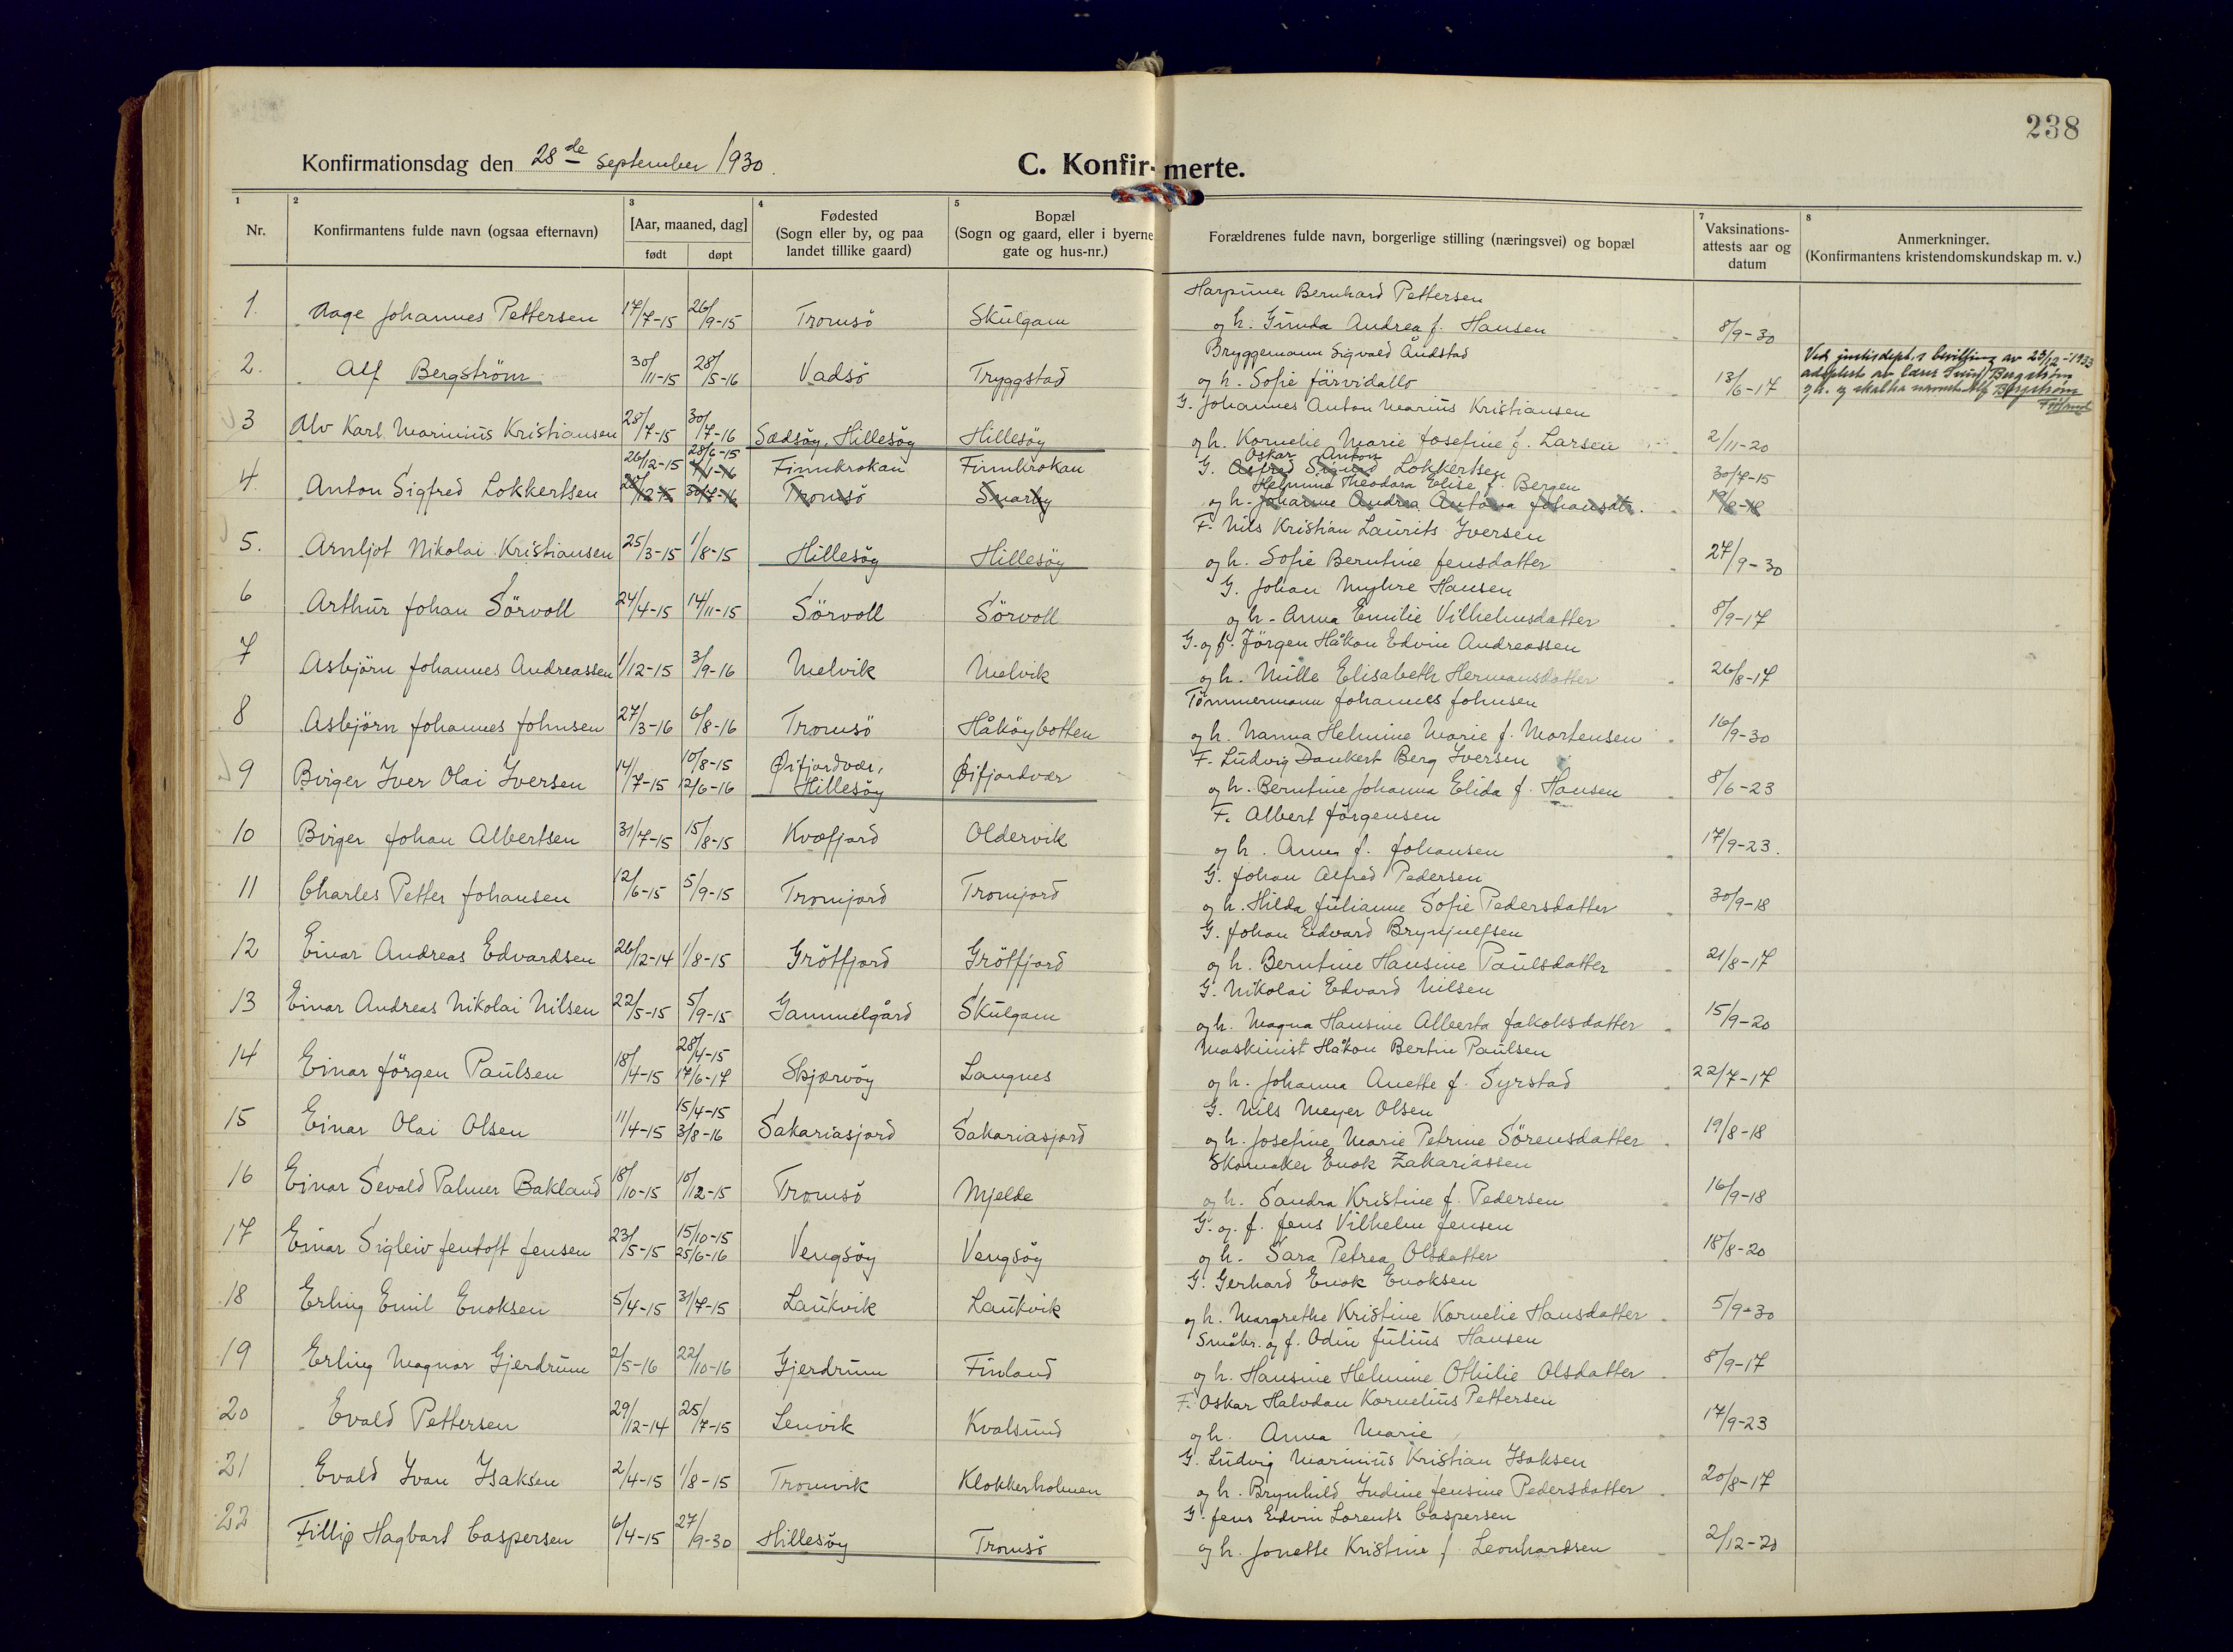 238
Konfirmationsdag den 28de September 1930.
C. Konfirmerte.
1 2 3 4 5 7 8
Nr. Konfirmantens fulde navn (ogsaa efternavn) [Aar, maaned, dag] født døpt Fødested (Sogn eller by, og paa landet tillike gaard) Bopæl (Sogn og gaard, eller i byerne gate og hus-nr.) Forældrenes fulde navn, borgerlige stilling (næringsvei) og bopæl Vaksinations-attests aar og datum Anmerkninger. (Konfirmantens kristendomskundskap m. v.)
Harpuner Bernhard Pettersen
1. Aage Johannes Pettersen 17/7-15 26/9-15 Tromsö Skulgam og h. Gunda Andrea f. Hansen 8/9-30
Bryggemann Sigvald Åndstad
2. Alf Bergström 30/11-15 28/5-16 Vadsö Tryggstad og h. Sofie Järvidallo 13/6-17
Ved justisdept.s bevilling av 23/12-1933
adoptert av Bergström
og h. og skal ha navnet Alf Bergström
G. Johannes Anton Marius Kristiansen
3 Alv Karl Marinius Kristiansen 28/7-15 30/7-16 Sædsöy, Hillesöy Hillesöy og h. Kornelie Marie Josefine f. Larsen 2/11-20
26/12-15 28/6-15 4/1-16 Finnkrokan Finnkrokan Oskar Anton
G. Asfred Sigurd Lokkertsen 30/7-15
4 Anton Sigfred Lokkertsen 28/12-15 30/7-16 Tromsö Snarby Helmine Theodora Elise f. Bergen
og h. Johanne Andrea Antona Johansdtr. 19/8-18
F. Nils Kristian Laurits Iversen
5. Arnljot Nikolai Kristiansen 25/3-15 1/8-15 Hillesöy Hillesöy og h. Sofie Berntine Jensdatter 27/9-30
G. Johan Myhre Hansen
6 Arthur Johan Sörvoll 24/4-15 14/11-15 Sörvoll Sörvoll og h. Anna Emilie Vilhelmsdatter 8/9-17
G. og f. Jörgen Håkon Edvin Andreassen
7 Asbjörn Johannes Andreassen 1/12-15 3/9-16 Melvik Melvik og h. Mille Elisabeth Hermansdatter 26/8-17
Tömmermann Johannes Johnsen
8 Asbjörn Johannes Johnsen 27/3-16 6/8-16 Tromsö Håköybotten og h. Nanna Helmine Marie f. Mortensen 16/9-30
F. Ludvig Dankert Berg Iversen
9 Birger Iver Olai Iversen 14/7-15 10/8-15 12/6-16 Øifjordvær, Hillesöy Øifjordvær og h. Berntine Johanna Elida f. Hansen 8/6-23
F. Albert Jörgensen
10 Birger Johan Albertsen 31/7-15 15/8-15 Kvæfjord Oldervik og h. Anna f. Johansen 17/9-23.
G. Johan Alfred Pedersen
11 Charles Petter Johansen 12/6-15 5/9-15 Tromjord Tromjord og h. Hilda Julianne Sofie Pedersdatter 30/9-18
G. Johan Edvard Brynjulfsen
12 Einar Andreas Edvardsen 26/12-14 1/8-15 Grötfjord Grötfjord og h. Berntine Hansine Paulsdatter 21/8-17
G. Nikolai Edvard Nilsen
13 Einar Andreas Nikolai Nilsen 22/5-15 5/9-15 Gammelgård Skulgam og h. Magna Hansine Alberta Jakobsdatter 15/9-20
Maskinist Håkon Bertin Paulsen
14 Einar Jörgen Paulsen 18/4-15 28/4-15 17/6-17 Skjærvöy Langnes og h. Johanna Anette f. Syrstad 22/7-17
G. Nils Meyer Olsen
15 Einar Olai Olsen 11/4-15 15/4-15 3/8-16 Sakariasjord Sakariasjord og h. Josefine Marie Petrine Sörensdatter 19/8-18
Skomaker Enok Zakariassen
16 Einar Sevald Palmer Bakland 18/10-15 10/12-15 Tromsö Mjelde og h. Sandra Kristine f. Pedersen 16/9-18
G. og. f. Jens Vilhelm Jensen
17 Einar Sigleiv Jentoft Jensen 23/5-15 15/10-15 25/6-16 Vengsöy Vengsöy og h. Sara Petrea Olsdatter 18/8-20
G. Gerhard Enok Enoksen
18 Erling Emil Enoksen 5/4-15 31/7-15 Laukvik Laukvik og h. Margrethe Kristine Kornelie Hansdatter 5/9-30
Småbr. og f. Odin Julius Hansen
19 Erling Magnar Gjerdrum 2/5-16 22/10-16 Gjerdrum Finland og h. Hansine Helmine Othilie Olsdatter 8/9-17
F. Oskar Halvdan Kornelius Pettersen
20 Evald Pettersen 29/12-14 25/7-15 Lenvik Kvalsund og h. Anna Marie 17/9-23
G. Ludvig Marinius Kristian Isaksen
21 Evald Ivan Isaksen 2/4-15 1/8-15 Tromvik Klokkerholmen og h. Brynhild Indine Jensine Pedersdatter 20/8-17
G. Jens Edvin Lorents Caspersen
22 Fillip Hagbart Caspersen 6/4-15 27/9-30 Hillesöy Tromsö og h. Jonette Kristine f. Leonhardsen 2/12-20